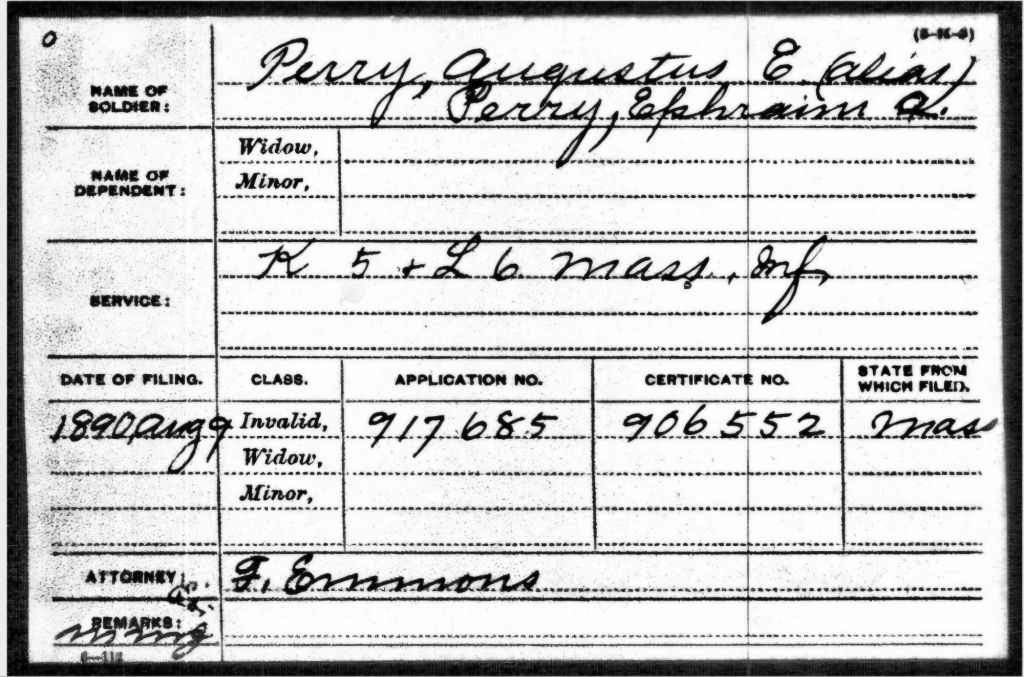 O
(3-K-3)
Perry, Augustus E. (alias)
NAME OF
SOLDIER:
Perry, Ephraim A.
NAME OF
DEPENDENT:
Widow,
Minor,
SERVICE:
K 5 & L 6 Mass. Inf.
DATE OF FILING.
CLASS.
APPLICATION NO.
CERTIFICATE NO.
STATE FROM
WHICH FILED.
1890, Aug 9
Invalid,
917685
906552
Mass
Widow,
Minor,
ATTORNEY:
F. Emmons
REMARKS: